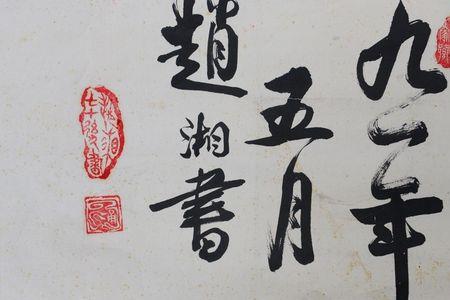 九一年
五月
趙湘書